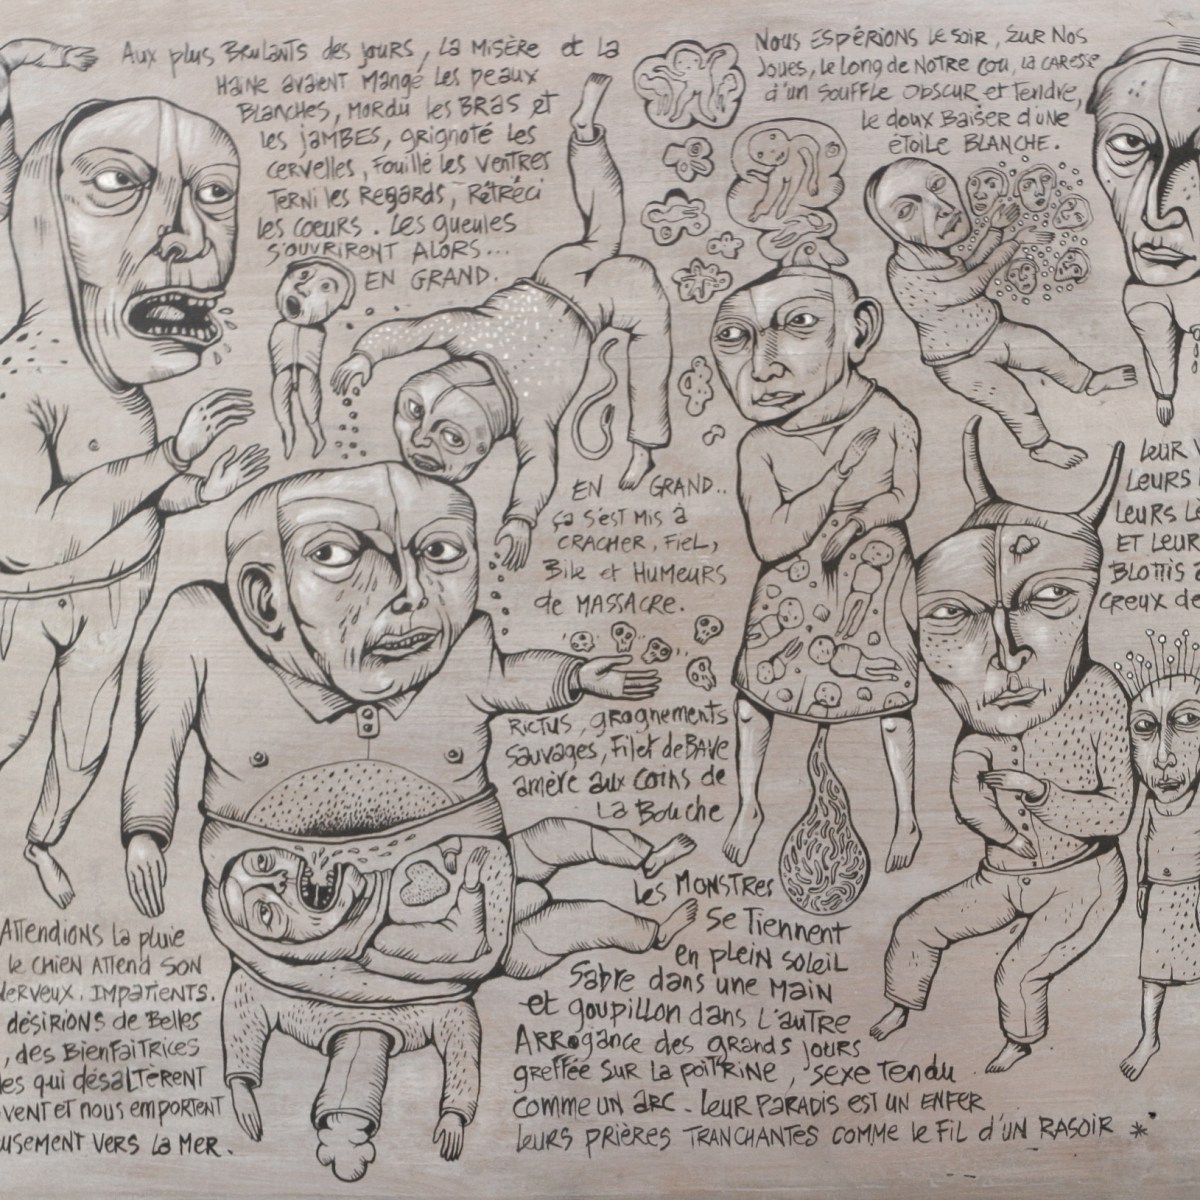 Aux plus Brulants des jours, la misère et la
Haine avaient mangé les peaux
Blanches, mordu les bras et
les jambes, grignoté les
cervelles, fouillé les ventres
Terni les Regards, Rétréci
les coeurs. Les gueules
s'ouvrirent alors...
en grand.
Nous espérions le soir, sur nos
Joues, le long de notre cou, la caresse
d'un souffle obscur et tendre,
le doux baiser d'une
étoile blanche.
en grand..
ça s'est mis à
cracher, fiel,
Bile et humeurs
de massacre.
Rictus, grognements
sauvages, filet de bave
amère aux coins de
la bouche
les monstres
se tiennent
en plein soleil
Sabre dans une main
et goupillon dans l'autre
Arrogance des grands jours
greffée sur la poitrine, sexe tendu
comme un arc. leur paradis est un enfer
leurs prières tranchantes comme le fil d'un rasoir *
Attendions la pluie
le chien attend son
nerveux. impatients.
désirions de belles
, des bienfaitrices
les qui désaltèrent
vent et nous emportent
usement vers la mer.
leur
leurs
leurs
et leur
Blottis
creux de